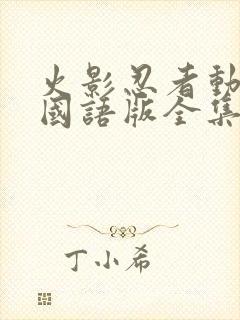 火影忍者動
國語版全集
丁小希